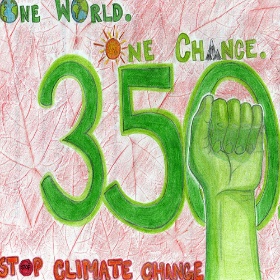 One World.
One Change.
350
STOP CLIMATE CHANGE